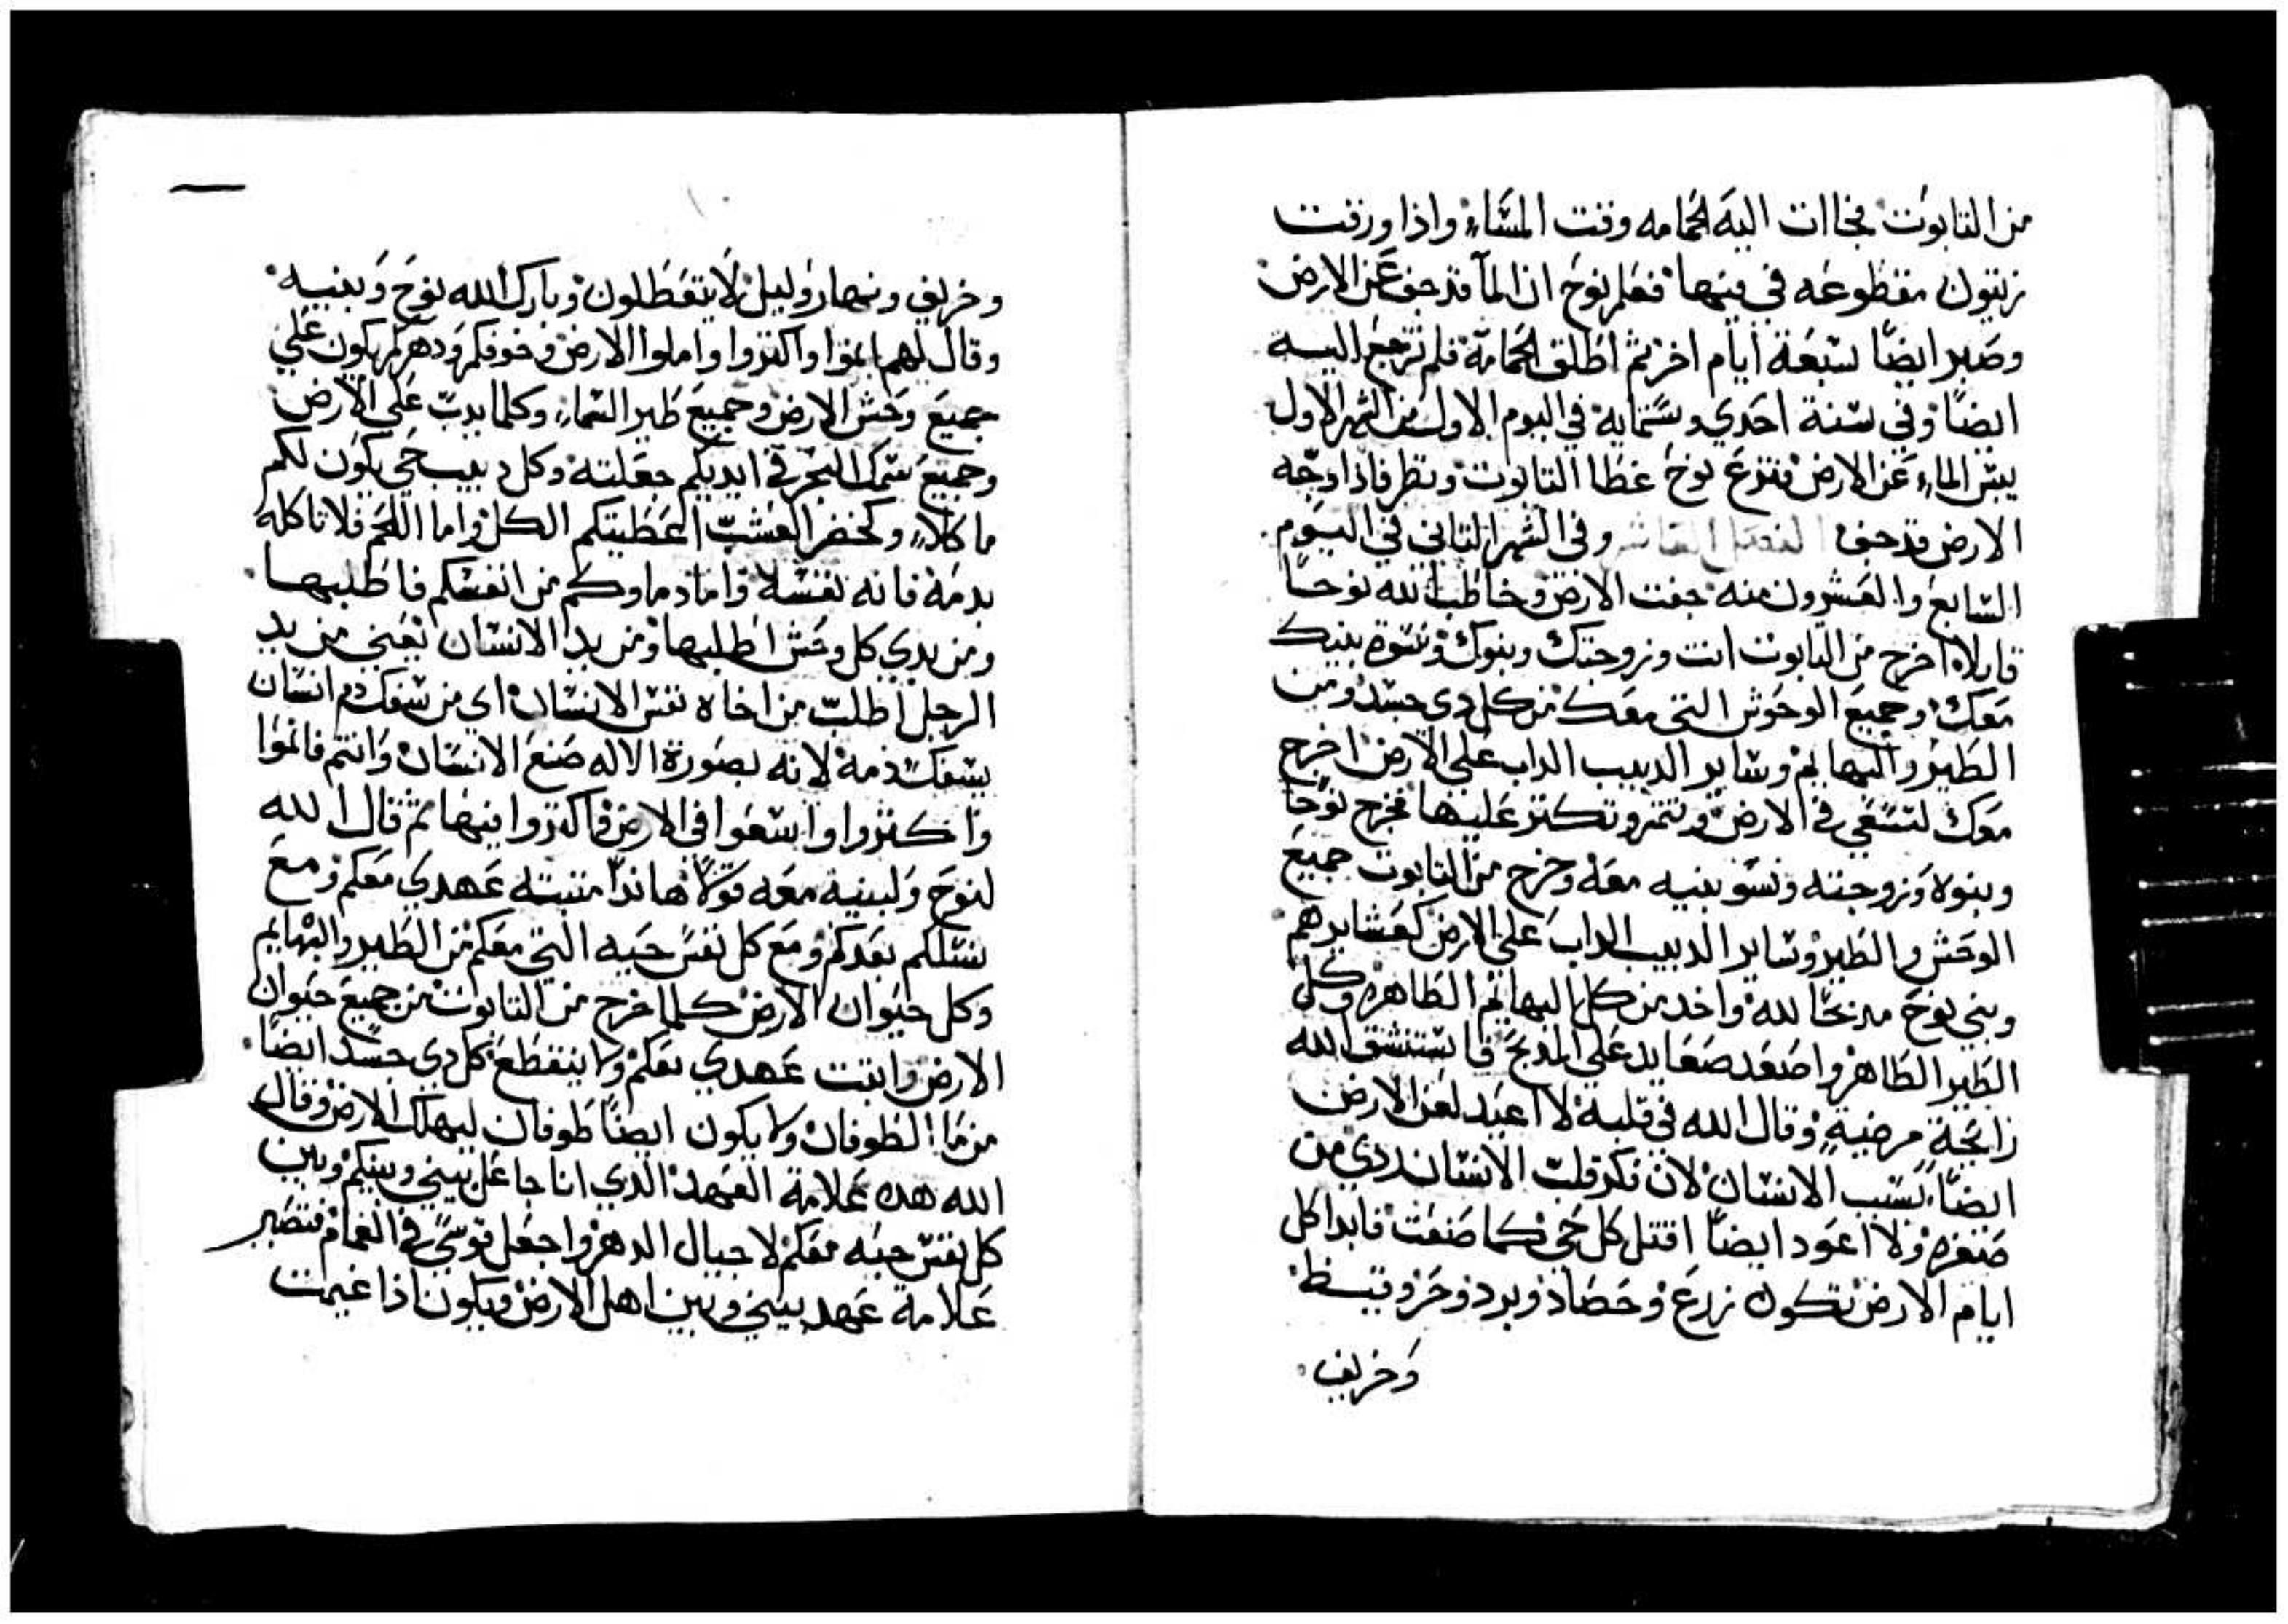 من التابوت فجاات اليه الحمامه وقت المساء واذا ورقت
زيتون مقطوعه في فيها فعلم نوح ان المآ قد جف عن الارض
وصبر ايضًا سبعة ايام اخر ثم اطلق الحمامة فلم ترجع اليه
ايضًا وفي سنة احدي وستمايه في اليوم الاول من الشهر الاول
يبس الماء عن الارض فنزع نوح غطا التابوت ونظر فاذا وجه
الارض قد جف الفصل العاشر وفي الشهر التاني في اليوم
السابع والعشرون منه جفت الارض وخاطب الله نوحا
قايلاً اخرج من التابوت انت وزوجتك وبنوك ونسوة بنيك
معك وجميع الوحوش التي معك من كل دي جسد ومن
الطير والبهايم وساير الدبيب الداب علي الارض اخرج
معك لتسعي في الارض وتنمو وتكتر عليها فخرج نوحا
وبنوه وزوجته ونسو بنيه معه وخرج من التابوت جميع
الوحش والطير وساير الدبيب الداب علي الارض كعشايرهم
وبني نوح مدبحًا لله واخد من كل البهايم الطاهره وكل
الطير الطاهر واصعد صعايد علي المدبح فاستنشق الله
رايحة مرضية وقال الله في قلبه لا اعيد لعن الارض
ايضًا بسبب الانسان لان فكر قلب الانسان ردي من
صغره ولا اعود ايضًا اقتل كل حي كما صنعت فابدا كل
ايام الارض تكون زرع وحصاد وبرد وحر وقيظ
وخريف
وخريف ونهار وليل لا يتعطلون وبارك الله نوح وبنيه
وقال لهم انموا واكتروا واملوا الارض وخوفكم ودهركم يكون علي
جميع وحش الارض وجميع طير السماء وكلما يدب علي الارض
وجميع سمك البحر في ايديكم جعلته وكل دبيب حي يكون لكم
ماكلاً وكخضر العشب اعطيتكم الكل واما اللحم فلا تاكله
بدمه فانه نفسه واما دماوكم من انفسكم فاطلبها
ومن يدي كل وحش اطلبها ومن يد الانسان يعني من يد
الرجل اطلب من اخاه نفس الانسان اي من سفك دم انسان
يسفك دمه لانه بصورة الاله صنع الانسان وانتم فانموا
واكتروا واسعوا في الارض واكتروا فيها ثم قال الله
لنوح ولبنيه معه قولاً هاندا متبته عهدي معكم ومع
نسلكم بعدكم ومع كل نفس حيه التي معكم من الطير والبهايم
وكل حيوان الارض كلما خرج من التابوت من جميع حيوان
الارض واتبت عهدي معكم ولا ينقطع كل دي جسد ايضًا
من ما الطوفان ولا يكون ايضًا طوفان ليهلك الارض وقال
الله هده علامة العهد الدي انا جاعل بيني وبينكم وبين
كل نفس حيه معكم لاجيال الدهر واجعل قوسي في الغمام فتصير
علامة عهد بيني وبين اهل الارض ويكون اذا غيمت